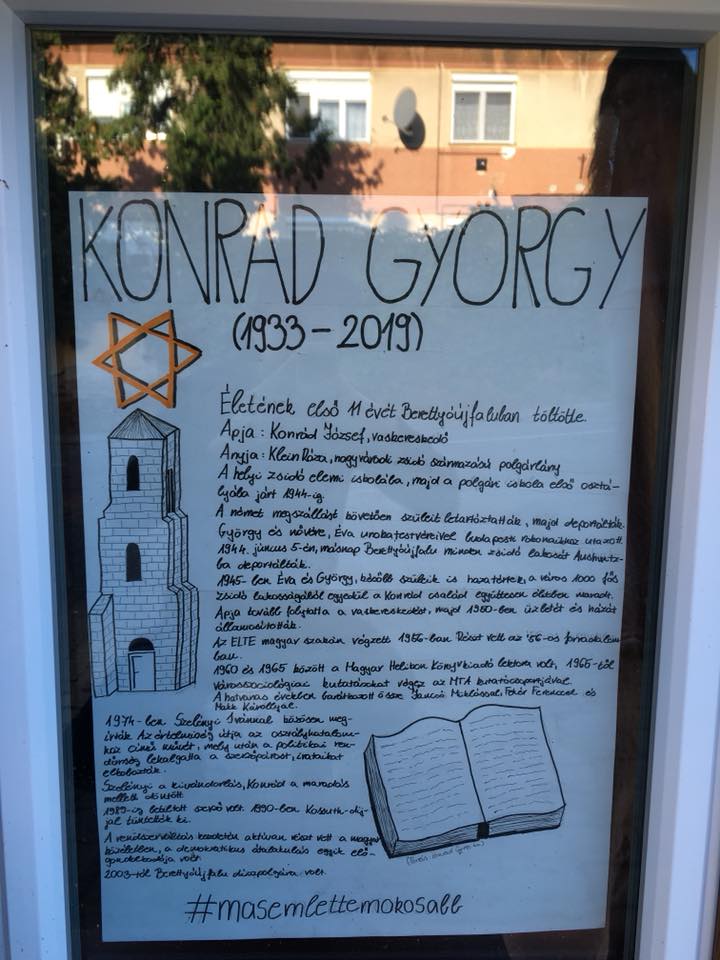 KONRÁD GYÖRGY
(1933 – 2019)
Életének első 11 évét Berettyóújfaluban töltötte.
Apja : Konrád József, vaskereskedő
Anyja : Klein Róza, nagyváradi zsidó származású polgárlány
A helyi zsidó elemi iskolába, majd a polgári iskola első osztá-
lyába járt 1944-ig.
A német megszállást követően szüleit letartóztatták, majd deportálták.
György és nővére, Éva unokatestvéreivel budapesti rokonaikhoz utazott.
1944. június 5-én, másnap Berettyóújfalu minden zsidó lakosát Auschwitz-
ba deportálták.
1945-ben Éva és György, később szüleik is hazatértek, a város 1000 fős
zsidó lakosságából egyedül a Konrád család együttesen életben maradt.
Apja tovább folytatta a vaskereskedést, majd 1950-ben üzletét és házát
államosították.
Az ELTE magyar szakán végzett 1956-ban Részt vett az '56-os forradalom-
ban.
1960 és 1965 között a Magyar Helikon Könyvkiadó lektora volt, 1965-től
városszociológiai kutatásokat végez az MTA kutatócsoportjával.
A hatvanas években barátkozott össze Jancsó Miklóssal, Fehér Ferenccel és
Makk Károllyal.
1974-ben Szelényi Ivánnal közösen meg-
írták Az értelmiség útja az osztályhatalom-
hoz című művét, mely után a politikai ren-
dőrség lehallgatta a szerzőpárost, irataikat
elkobozták.
Szelényi a kivándorlás, Konrád a maradás
mellett döntött.
1989-ig letiltott szerző volt. 1990-ben Kossuth-díj-
jal tüntették ki.
A rendszerváltás kezdetén aktívan részt vett a magyar
közéletben, a demokratikus átalakulás egyik elő-
gondolkodója volt.
2003-tól Berettyóújfalu díszpolgára volt.
#masemlettemokosabb